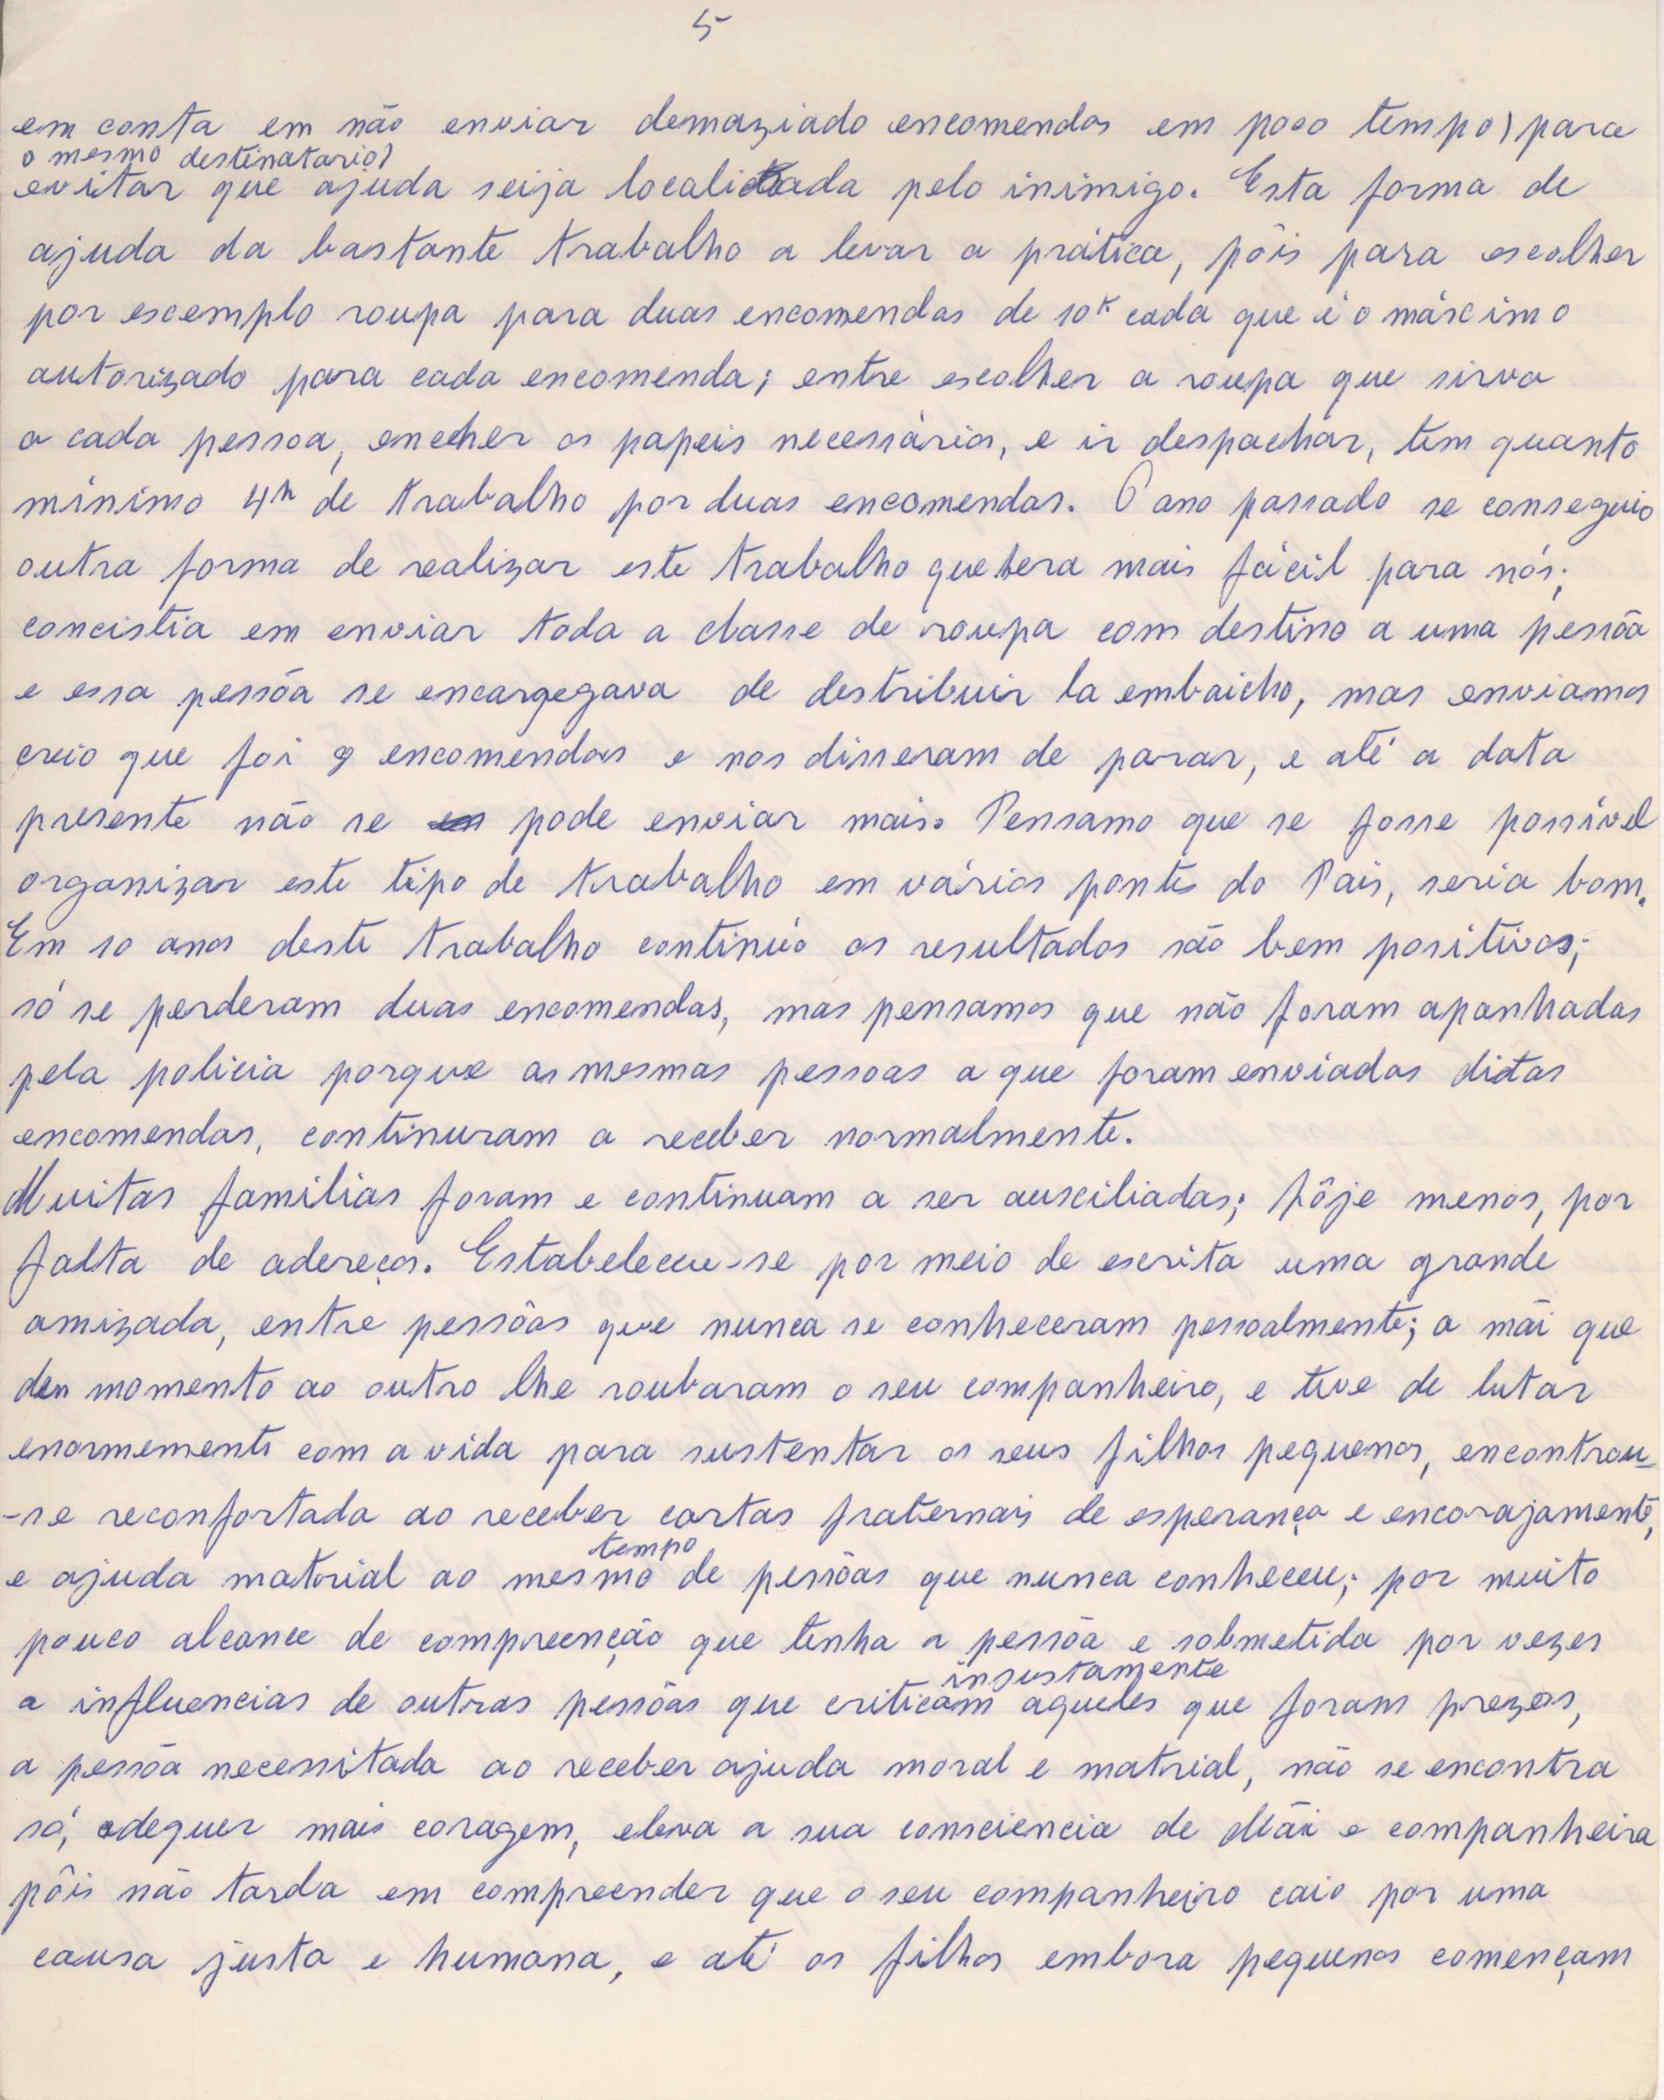 5
em conta em não enviar demaziado encomendas em poco tempo) para
o mesmo destinatario)
evitar que ajuda seija localizada pelo inimigo. Esta forma de
ajuda da bastante trabalho a levar a prática, pôis para escolher
por escemplo roupa para duas encomendas de 10k cada que é o máscimo
autorizado para cada encomenda; entre escolher a roupa que sirva
a cada pessoa, enecher os papeis necessários, e ir despachar, tem quanto
minimo 4h de trabalho por duas encomendas. O ano passado se conseguio
outra forma de realizar este trabalho que hera mais fácil para nós;
concistia em enviar toda a classe de roupa com destino a uma pessõa
e essa pessõa se encargegava de destribuir la embaicho, mas enviamos
creio que foi 9 encomendas e nos disseram de parar, e até a data
presente não se pode enviar mais. Pensamo que se fosse possível
organizar este tipo de trabalho em vários pontes do Pais, seria bom.
Em 10 anos deste trabalho continúo os resultados são bem positivos;
só se perderam duas encomendas, mas pensamos que não foram apanhadas
pela policia porque as mesmas pessoas a que foram enviadas ditas
encomendas, continuram a receber normalmente.
Muitas familias foram e continuam a ser auxciliadas; hôje menos, por
falta de adereços. Estabeleceu-se por meio de escrita uma grande
amizada, entre pessõas que nunca se conheceram pessoalmente; a mãi que
dum momento ao outro lhe roubaram o seu companheiro, e tive de lutar
enormemente com a vida para sustentar os seus filhos pequenos, encontrou-
-se reconfortada ao receber cartas fraternais de esperança e encorajamento,
tempo
e ajuda matrial ao mesmo de pessõas que nunca conheceu; por muito
pouco alcance de compreenção que tenha a pessõa e sobmetida por vezes
insustamente
a influencias de outras pessõas que criticam aqueles que foram prezos,
a pessõa necessitada ao receber ajuda moral e matrial, não se encontra
só, adequer mais coragem, eleva a sua consciencia de Mãi e companheira
pôis não tarda em compreender que o seu companheiro caio por uma
causa justa e humana, e até os filhos embora pequenos començam